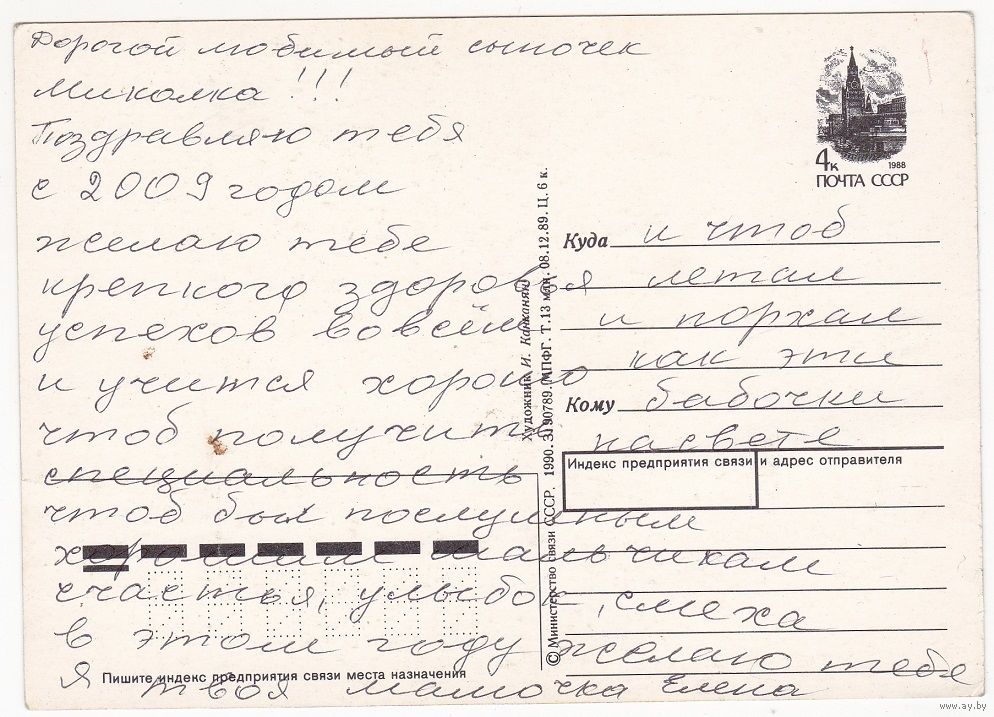 Дорогой любимый сыночек
Миколка!!!
Поздравляю тебя
с 2009 годом
желаю тебе
крепкого здоровья
успехов во всём
и учится хорошо
чтоб получить
специальность
чтоб был послушным
хорошим мальчикам
счастья, улыбок, смеха
в этом году желаю тебе
я твоя мамочка Елена
и чтоб
летал
и порхал
как эти
бабочки
на свете
4к
1988
ПОЧТА СССР
Куда
Кому
Индекс предприятия связи и адрес отправителя
Пишите индекс предприятия связи места назначения
Художник И. Канканян
© Министерство связи СССР. 1990. З. 190789. МПФГ. Т. 13 млн. 08.12.89. Ц. 6 к.
www.ay.by